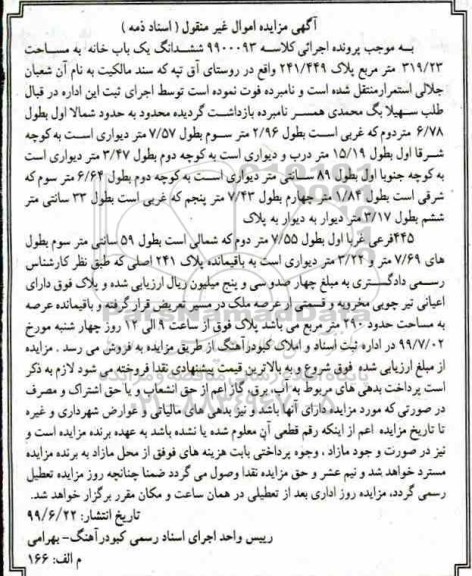 آگهی مزایده اموال غیر منقول ( اسناد ذمه )
به موجب پرونده اجرائی کلاسه ۹۹۰۰۰۹۳ ششدانگ یک باب خانه به مساحت
۳۱۹/۲۳ متر مربع پلاک ۲۴۱/۴۴۹ واقع در روستای آق تپه که سند مالکیت به نام آن شعبان
جلالی استمرار منتقل شده است و نامبرده فوت نموده است توسط اجرای ثبت این اداره در قبال
طلب سهیلا بگ محمدی همسر نامبرده بازداشت گردیده محدود به حدود شمالا اول بطول
۶/۷۸ متر دوم که غربی است بطول ۲/۹۶ متر سوم بطول ۷/۵۷ متر دیواری است به کوچه
شرقا اول بطول ۱۵/۱۹ متر درب و دیواری است به کوچه دوم بطول ۳/۴۷ متر دیواری است
به کوچه جنوبا اول بطول ۸۹ سانتی متر دیواری است به کوچه دوم بطول ۶/۶۴ متر سوم که
شرقی است بطول ۱/۸۴ متر چهارم بطول ۷/۴۳ متر پنجم که غربی است بطول ۳۳ سانتی متر
ششم بطول ۳/۱۷ متر دیوار به دیوار به پلاک
۴۴۵فرعی غربا اول بطول ۷/۵۵ متر دوم که شمالی است بطول ۵۹ سانتی متر سوم بطول
های ۷/۶۹ متر و ۳/۲۴ متر دیواری است به باقیمانده پلاک ۲۴۱ اصلی که طبق نظر کارشناس
رسمی دادگستری به مبلغ چهار صدو سی و پنج میلیون ریال ارزیابی شده و پلاک فوق دارای
اعیانی تیر چوبی مخروبه و قسمتی از عرصه ملک در مسیر تعریض قرار گرفته و باقیمانده عرصه
به مساحت حدود ۲۹۰ متر مربع می باشد پلاک فوق از ساعت ۹ الی ۱۲ روز چهار شنبه مورخ
۹۹/۷/۰۲ در اداره ثبت اسناد و املاک کبودرآهنگ از طریق مزایده به فروش می رسد . مزایده
از مبلغ ارزیابی شده فوق شروع و به بالاترین قیمت پیشنهادی نقدا فروخته می شود لازم به ذکر
است پرداخت بدهی های مربوط به آب، برق، گاز اعم از حق انشعاب و یا حق اشتراک و مصرف
در صورتی که مورد مزایده دارای آنها باشد و نیز بدهی های مالیاتی و عوارض شهرداری و غیره
تا تاریخ مزایده اعم از اینکه رقم قطعی آن معلوم شده یا نشده باشد به عهده برنده مزایده است و
نیز در صورت و جود مازاد ، وجوه پرداختی بابت هزینه های فوفق از محل مازاد به برنده مزایده
مسترد خواهد شد و نیم عشر و حق مزایده نقدا وصول می گردد ضمنا چنانچه روز مزایده تعطیل
رسمی گردد، مزایده روز اداری بعد از تعطیلی در همان ساعت و مکان مقرر برگزار خواهد شد.
تاریخ انتشار: ۹۹/۶/۲۲
رییس واحد اجرای اسناد رسمی کبودرآهنگ- بهرامی
م الف: ۱۶۶